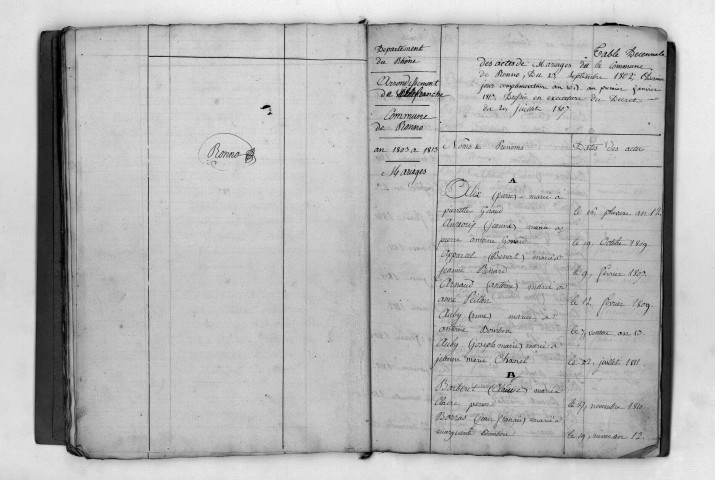 Ronno
Département
du Rhône
Arrondissement
de Villefranche
Commune
de Ronno
an 1803 a 1813
Mariages
Table Decennale
des actes de Mariages de la Commune
de Ronno, Du 23 Septembre 1802
jour complémentaire an
en execution du Decret
du 20 juillet 1807
Noms & Prenoms
Dates des actes
A
Alix (pierre) marié a
pierrette Giraud
le 16 pluviose an 12.
(jeanne) mariée a
pierre antoine
le 19 Octobre 1809
Apparcel (Benoit) marié a
jeanne
le 9 février 1807
Arnaud (antoine) marié a
anne
le 12 février 1809
Auby mariée a
antoine Dombre
le 7 ventose an 13.
Auby (joseph marie) marié a
jeanne marie Chanel
le 22 juillet 1811.
B
Barberet (Claude) marié a
Claire
le 27 novembre 1810.
(jean françois) marié a
marguerite
le 19 an 12.